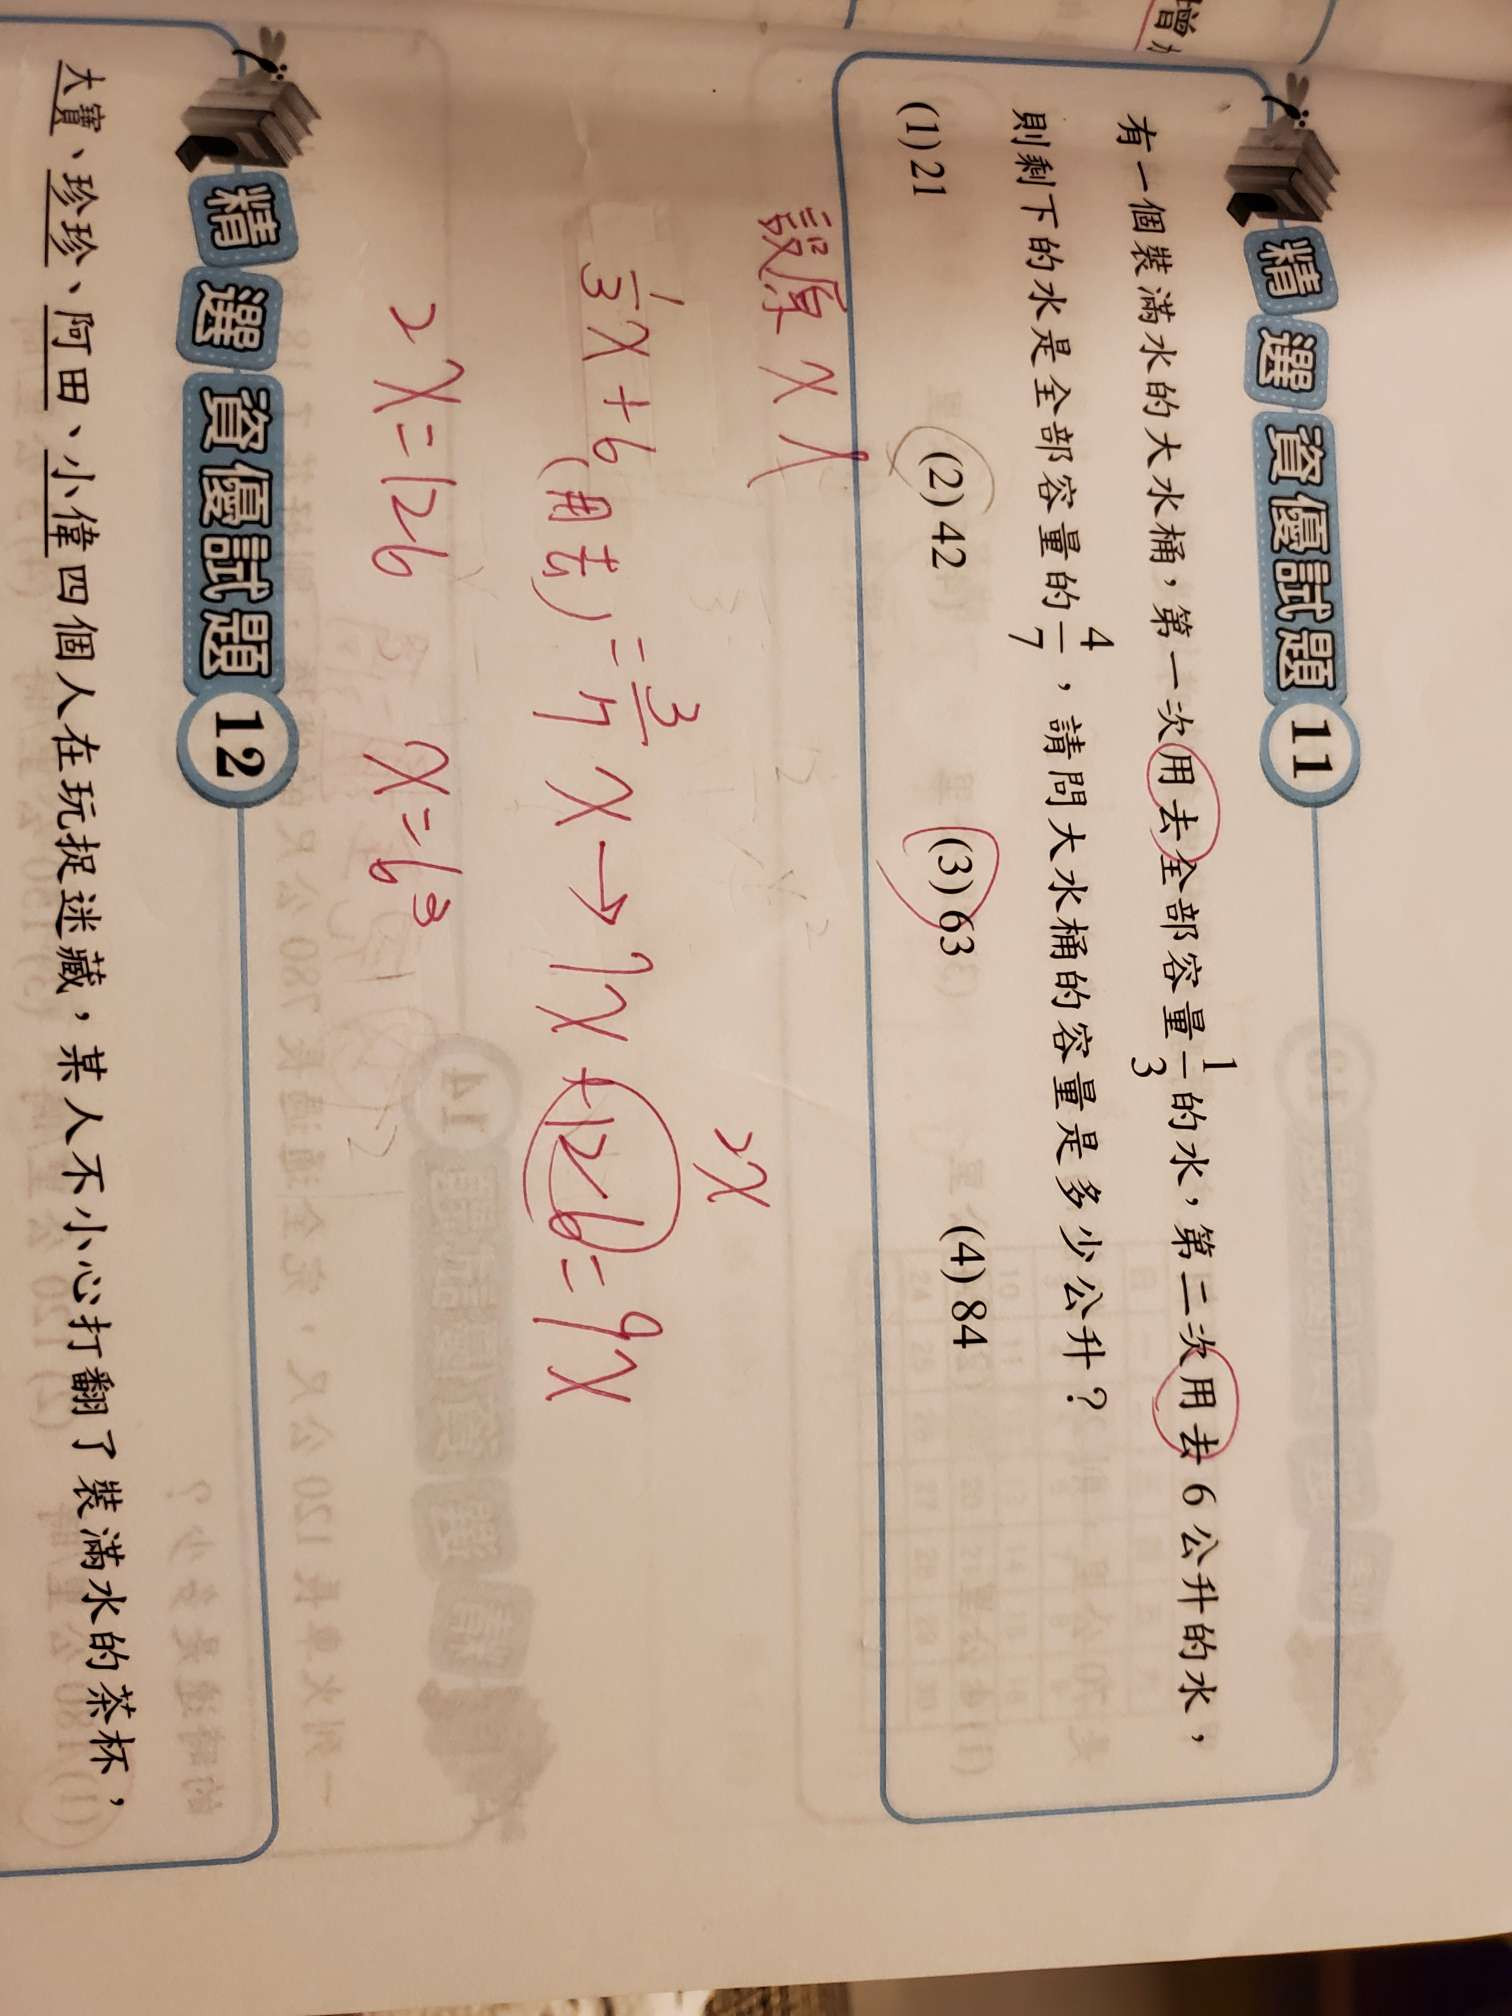 增
精選資優試題 11
有一個裝滿水的大水桶，第一次用去全部容量1/3的水，第二次用去6公升的水，
則剩下的水是全部容量的4/7，請問大水桶的容量是多少公升？
(1)21 (2)42 (3)63 (4)84
設原 x
2x
1/3x+6(用去)=3/7x→7x+126=9x
2x=126 x=63
精選資優試題 12
大寶、珍珍、阿田、小偉四個人在玩捉迷藏，某人不小心打翻了裝滿水的茶杯，